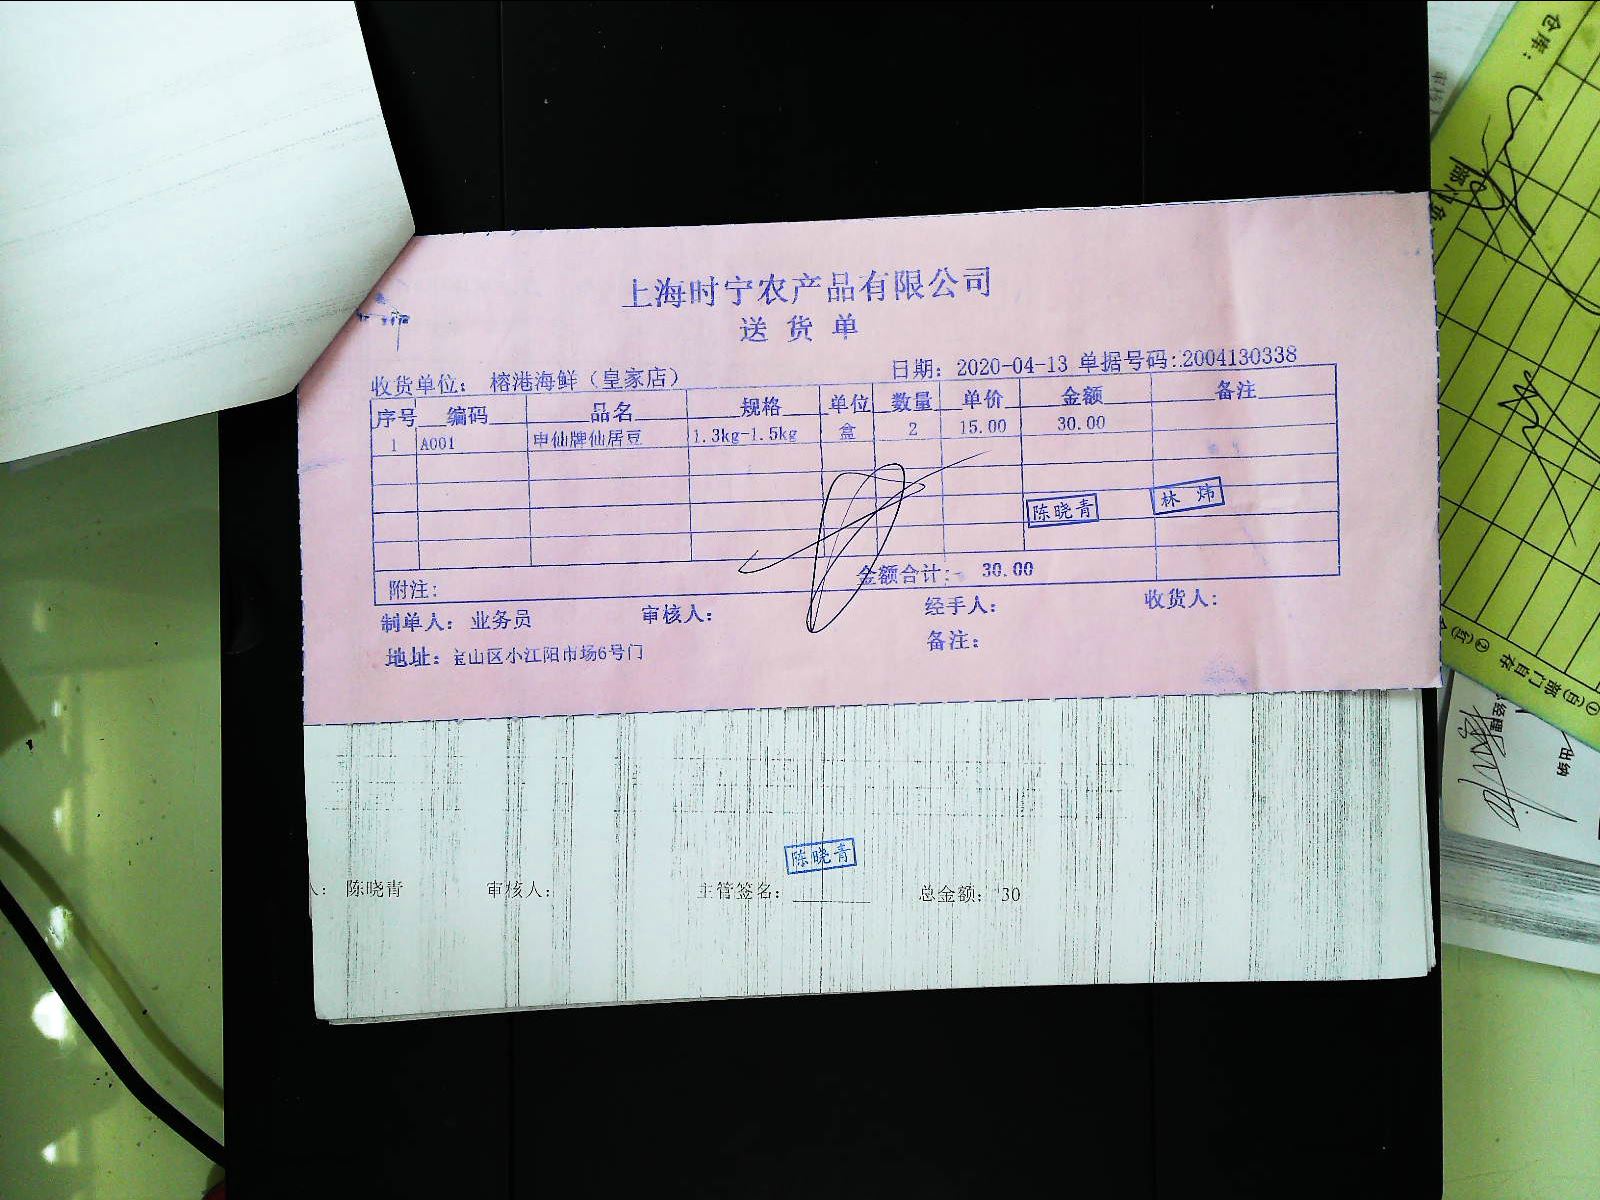 上海时宁农产品有限公司
送货单
收货单位： 榕港海鲜（皇家店） 日期： 2020-04-13 单据号码：2004130338
序号 编码 品名 规格 单位 数量 单价 金额 备注
1 A001 申仙牌仙居豆 1.3kg-1.5kg 盒 2 15.00 30.00
陈晓青 林炜
附注： 金额合计： 30.00
制单人： 业务员 审核人： 经手人： 收货人：
地址：宝山区小江阳市场6号门 备注：
陈晓青
人： 陈晓青 审核人： 主管签名： 总金额： 30
仓库：
①(白)部门自存
②(红)
出纳
经理